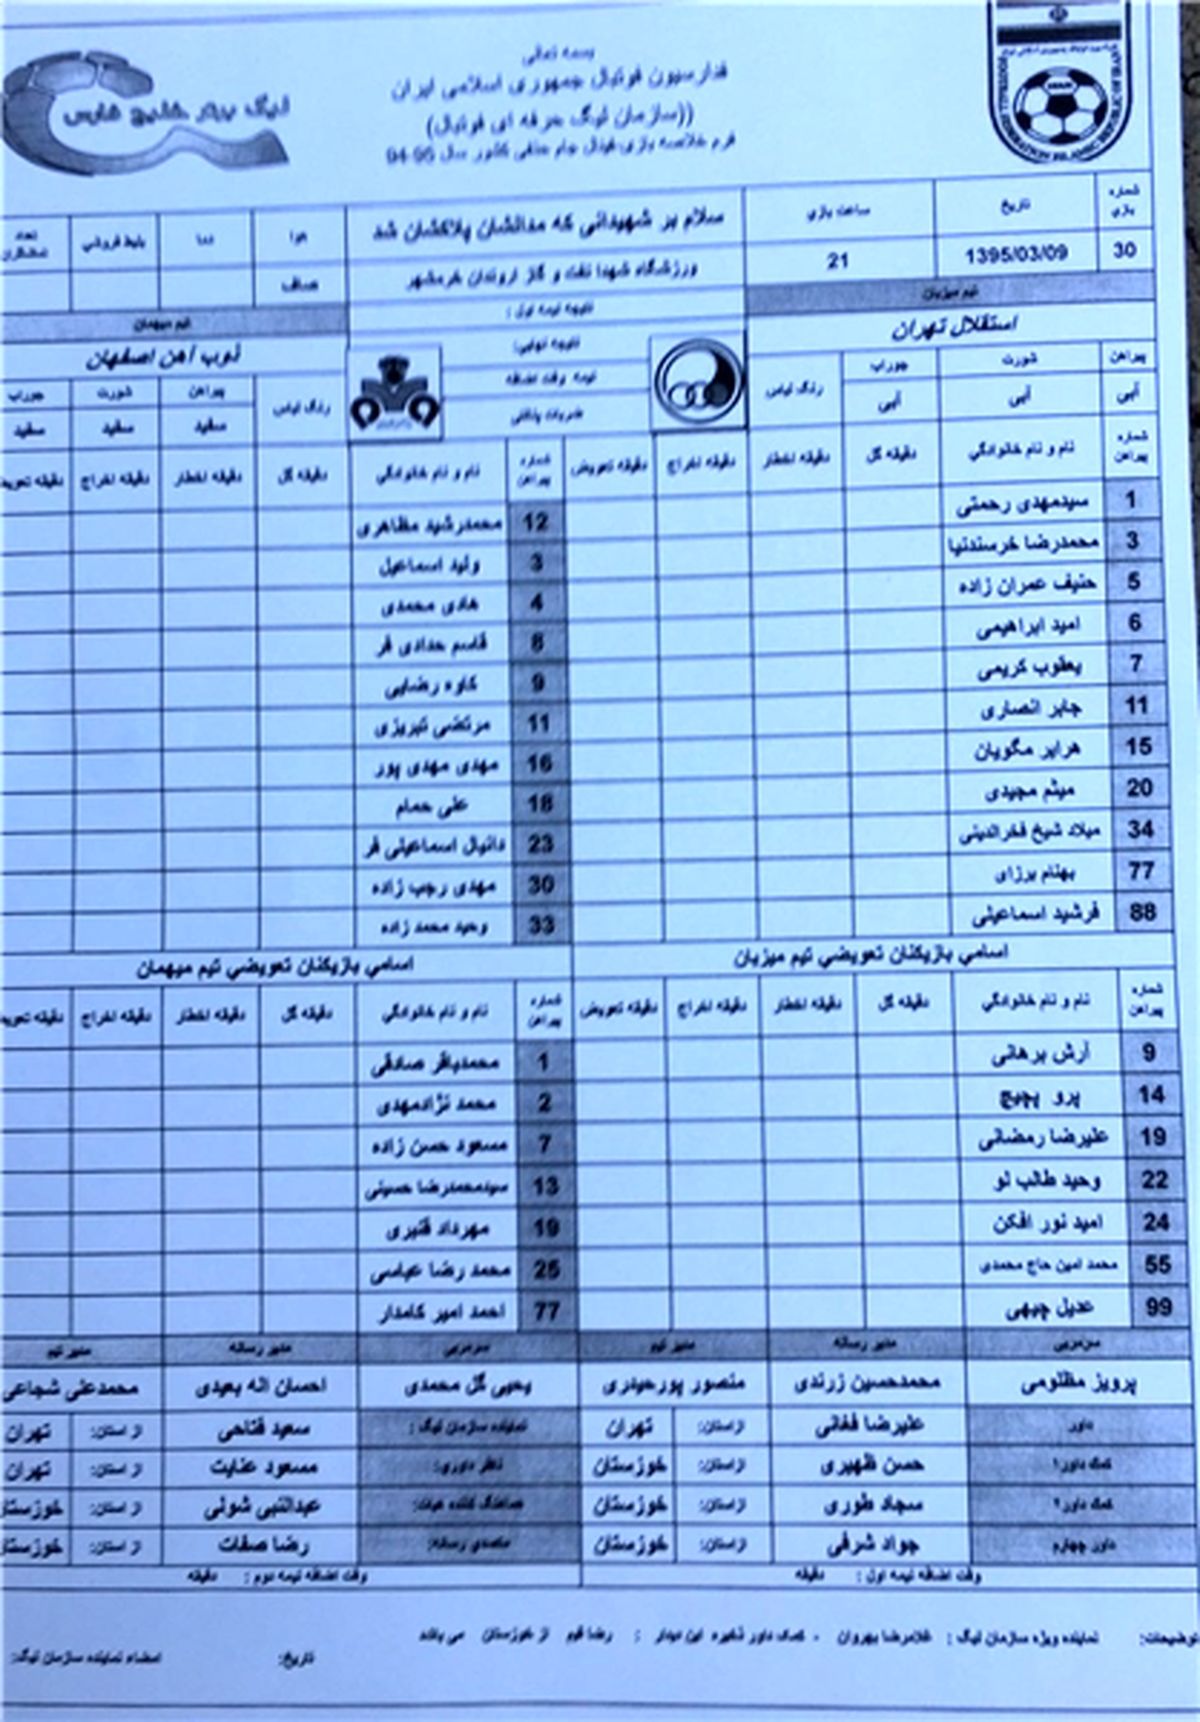 بسمه تعالی
فدارسیون فوتبال جمهوری اسلامی ایران
((سازمان لیگ حرفه ای فوتبال))
فرم خلاصه بازی فینال جام حذفی کشور سال 95-94
لیگ برتر خلیج فارس
شماره بازی تاریخ ساعت بازی سلام بر شهیدانی که مدالشان پلاکشان شد هوا دما بلیط فروشي تعداد تماشاگران
30 1395/03/09 21 ورزشگاه شهدا نفت و گاز اروندان خرمشهر صاف
تیم میزبان نتیجه نیمه اول : تیم میهمان
استقلال تهران نتیجه نهایی: ذوب آهن اصفهان
پیراهن شورت جوراب رنگ لباس نیمه وقت اضافه رنگ لباس پیراهن شورت جوراب
آبی آبی آبی ضربات پنالتی سفید سفید سفید
شماره پیراهن نام و نام خانوادگي دقیقه گل دقیقه اخطار دقیقه اخراج دقیقه تعویض شماره پیراهن نام و نام خانوادگي دقیقه گل دقیقه اخطار دقیقه اخراج دقیقه تعویض
1 سیدمهدی رحمتی 12 محمدرشید مظاهری
3 محمدرضا خرسندنیا 3 ولید اسماعیل
5 حنیف عمران زاده 4 هادی محمدی
6 امید ابراهیمی 8 قاسم حدادی فر
7 یعقوب کریمی 9 کاوه رضایی
11 جابر انصاری 11 مرتضی تبریزی
15 هرایر مگویان 16 مهدی مهدی پور
20 میثم مجیدی 18 علی حمام
34 میلاد شیخ فخرالدینی 23 دانیال اسماعیلی فر
77 بهنام برزای 30 مهدی رجب زاده
88 فرشید اسماعیلی 33 وحید محمد زاده
اسامي بازیکنان تعویضي تیم میزبان اسامي بازیکنان تعویضي تیم میهمان
شماره پیراهن نام و نام خانوادگي دقیقه گل دقیقه اخطار دقیقه اخراج دقیقه تعویض شماره پیراهن نام و نام خانوادگي دقیقه گل دقیقه اخطار دقیقه اخراج دقیقه تعویض
9 آرش برهانی 1 محمدباقر صادقی
14 پرو پجیچ 2 محمد نژادمهدی
19 علیرضا رمضانی 7 مسعود حسن زاده
22 وحید طالب لو 13 سیدمحمدرضا حسینی
24 امید نور افکن 19 مهرداد قنبری
55 محمد امین حاج محمدی 25 محمد رضا عباسی
99 عدیل چیهی 77 احمد امیر کامدار
سرمربی مدیر رسانه مدیر تیم سرمربی مدیر رسانه مدیر تیم
پرویز مظلومی محمدحسین زرندی منصور پورحیدری یحیی گل محمدی احسان اله بعیدی محمدعلی شجاعی
داور علیرضا فغانی از استان: تهران نماینده سازمان لیگ : سعید فتاحی از استان: تهران
کمک داور۱ حسن ظهیری از استان: خوزستان ناظر داوری: مسعود عنایت از استان: تهران
کمک داور۲ سجاد طوری از استان: خوزستان هماهنگ کننده هیات: عبدالنبی شولی از استان: خوزستان
داور چهارم جواد شرفی از استان: خوزستان متصدی رسانه: رضا صفات از استان: خوزستان
وقت اضافه نیمه اول : دقیقه وقت اضافه نیمه دوم : دقیقه
توضیحات: نماینده ویژه سازمان لیگ : غلامرضا بهروان - کمک داور ذخیره این دیدار : رضا قیم از خوزستان می باشد
تاریخ: امضاء نماینده سازمان لیگ: